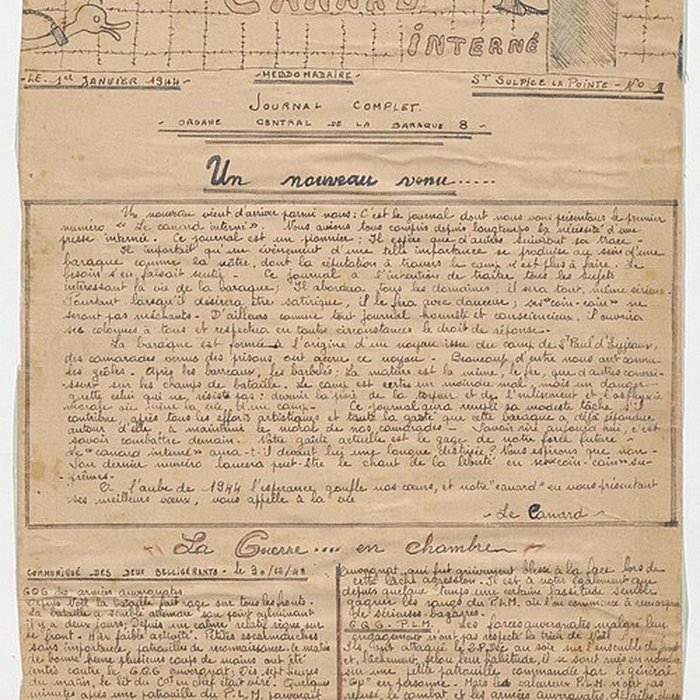 CANARD
INTERNÉ
- LE. 1er JANVIER 1944 -
- HEBDOMADAIRE -
ST SULPICE LA POINTE - No 1
JOURNAL COMPLET.
- ORGANE CENTRAL DE LA BARAQUE 8 -
Un nouveau venu......
Un nouveau vient d'arriver parmi nous: C'est le journal dont nous vous présentons le premier
numéro "Le canard interné". Nous avions tous compris depuis longtemps la nécessité d'une
presse internée. Ce journal est un pionnier: Il espère que d'autres suivront sa trace -
Il importait qu'un événement d'une telle importance se produise au sein d'une
baraque comme la nôtre, dont la réputation à travers le camp n'est plus à faire. Le
besoin s'en faisait sentir - Ce journal a l'intention de traiter tous les sujets
intéressant la vie de la baraque; Il abordera tous les domaines, il sera tout même sérieux.
Pourtant lorsqu'il désirera être satirique, il le fera avec douceur; ses "coin-coin" ne
seront pas méchants - D'ailleurs comme tout journal honnête et consciencieux, il ouvrira
ses colonnes à tous et respectera en toutes circonstances le droit de réponse -
La baraque est formée à l'origine d'un noyau issu du camp de St Paul d'Eyjeaux,
des camarades venus des prisons ont accru ce noyau - Beaucoup d'entre nous ont connu
les geôles. Après les barreaux, les barbelés: La matière est la même, le fer, que d'autres connais-
-sent sur les champs de bataille. Le camp est certes un moindre mal, mais un danger
guette celui qui ne résiste pas: devenir la proie de la torpeur et de l'enlisement et l'asphyxie
morale ou même la vie d'un camp - Ce journal aura rempli sa modeste tâche s'il
contribue après tous les efforts artistiques et toute la gaîté que cette baraque a déjà répandue
autour d'elle, à maintenir le moral de nos camarades - Savoir rire aujourd'hui, c'est
savoir combattre demain - Notre gaîté actuelle est le gage de notre force future -
Le "canard interné" aura-t-il devant lui une longue destinée? Nous espérons que non -
Son dernier numéro lancera peut-être le chant de la liberté en ses "coin-coin" su-
-prêmes -
A l'aube de 1944 l'espérance gonfle nos cœurs, et notre "canard" en vous présentant
ses meilleurs vœux, vous appelle à la vie
- Le Canard -
La Guerre .... en chambre
COMMUNIQUÉ DES DEUX BELLIGÉRANTS - le 30/12/43
GQG des armées auvergnates
Depuis Noël la bataille fait rage sur tous les fronts.
La bataille a semblé atteindre son point culminant
il y a deux jours; Depuis un calme relatif règne sur
le front - Hier faible activité. Petites escarmouches
sans importance, patrouilles de reconnaissance. Le matin
de bonne heure plusieurs coups de mains ont été
tentés contre le GQG auvergnat: Dès sept heures
du matin le lit du Ct en chef était visé. Quelques
minutes après une patrouille du P.L.M parvenait
auvergnat, qui fut grièvement blessé à la face lors de
cette lâche agression. Il est à noter également que
depuis quelque temps une certaine lassitude semble
gagner les rangs du P.L.M, où l'on commence à remarquer
de sérieuses bagarres.
G Q G - P.L.M. Les forces auvergnates malgré leur
engagement n'ont pas respecté la trêve de Noël.
Ils ont attaqué le sur l'ensemble du front
et, lâchement, selon leur habitude, il se sont rués en nombre
sur une petite patrouille commandée par le général
en personne - Nos valeureux P.L.M n'ont pas
refusé le combat et les armées auvergnates